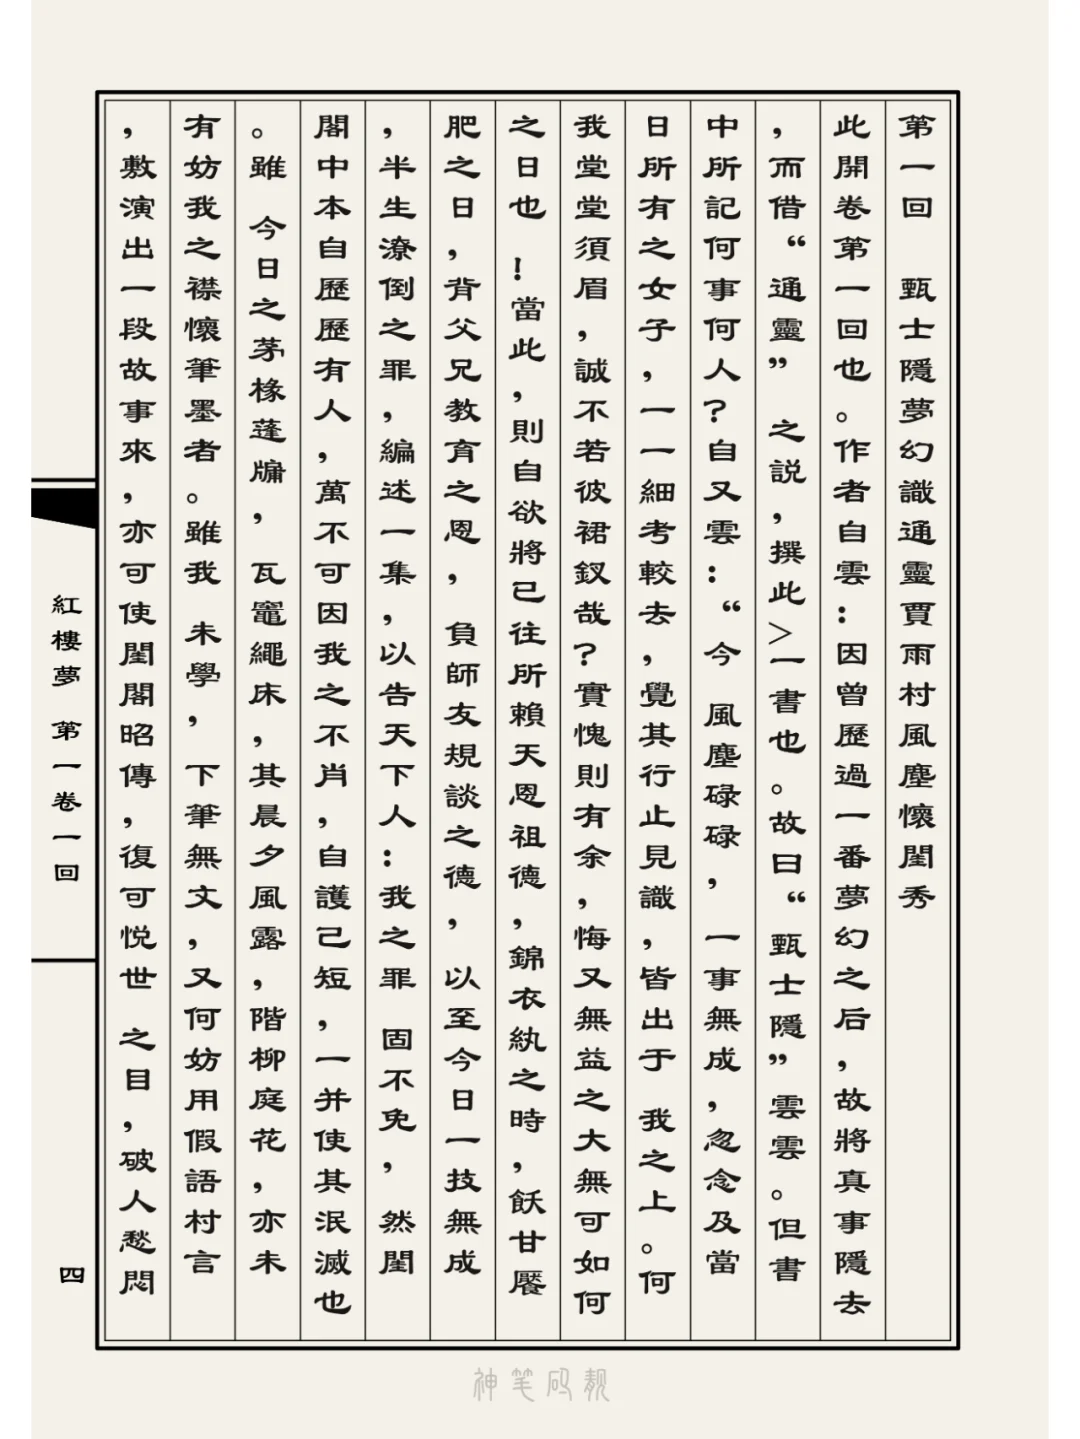 第一回 甄士隱夢幻識通靈賈雨村風塵懷閨秀
此開卷第一回也。作者自雲：因曾歷過一番夢幻之后，故將真事隱去
，而借“通靈”之説，撰此>一書也。故曰“甄士隱”雲雲。但書
中所記何事何人？自又雲：“今 風塵碌碌，一事無成，忽念及當
日所有之女子，一一細考較去，覺其行止見識，皆出于 我之上。何
我堂堂須眉，誠不若彼裙釵哉？實愧則有余，悔又無益之大無可如何
之日也 ！當此，則自欲將已往所賴天恩祖德，錦衣紈之時，飫甘饜
肥之日，背父兄教育之恩，負師友規談之德，以至今日一技無成
，半生潦倒之罪，編述一集，以告天下人：我之罪 固不免，然閨
閣中本自歷歷有人，萬不可因我之不肖，自護己短，一并使其泯滅也
。雖 今日之茅椽蓬牖，瓦竈繩床，其晨夕風露，階柳庭花，亦未
有妨我之襟懷筆墨者。雖我 未學，下筆無文，又何妨用假語村言
，敷演出一段故事來，亦可使閨閣昭傳，復可悦世 之目，破人愁悶
紅樓夢 第一卷一回
四
神笔码靓